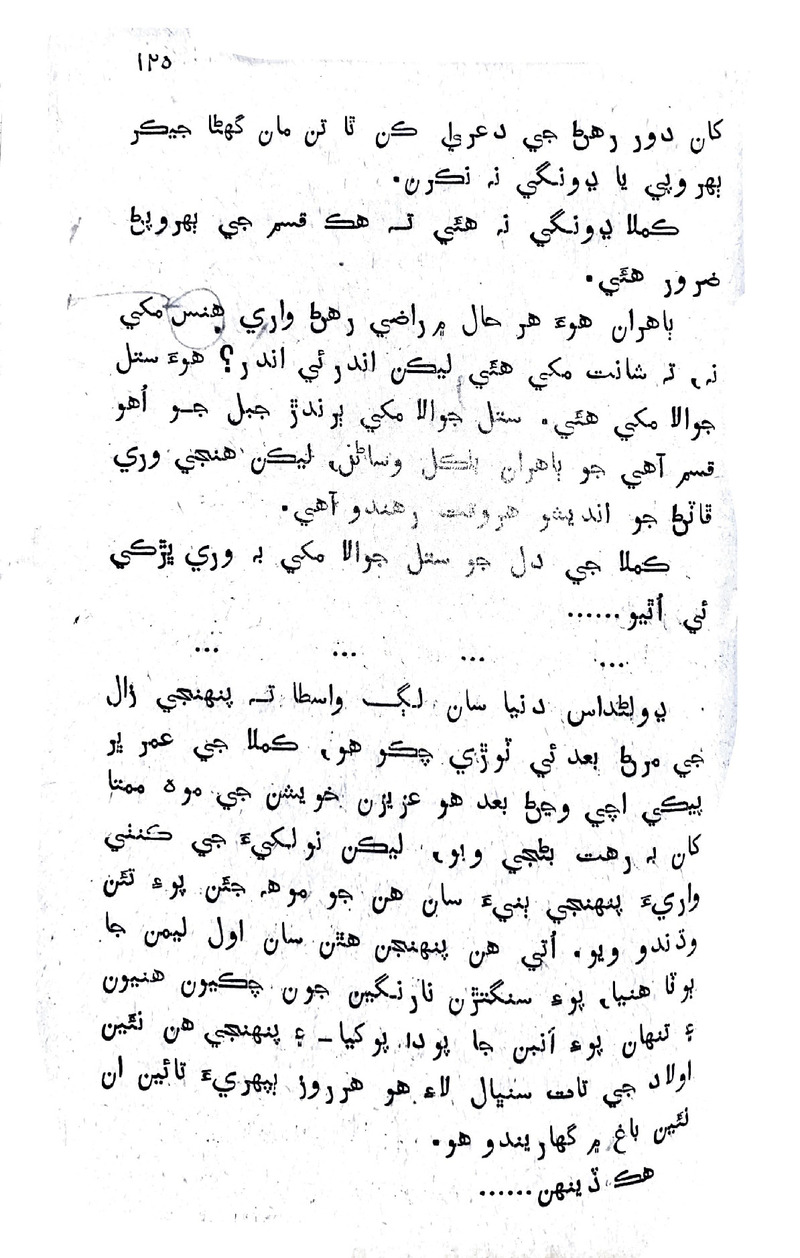 ١٢٥
کان دور رهڻ جي دعويٰ ڪن ٿا تن مان گهڻا جيڪر
بهروپي يا ڍونگي نہ نڪرن.
ڪملا ڍونگي نہ هئي تہ هڪ قسم جي بهروپڻ
ضرور هئي.
ٻاهران هوءَ هر حال ۾ راضي رهڻ واري هنس مکي
نہ، تہ شانت مکي هئي ليڪن اندر ئي اندر؟ هوءَ ستل
جوالا مکي هئي. ستل جوالا مکي ٻرندڙ جبل جو اُهو
قسم آهي جو ٻاهران بلڪل وساڻل، ليڪن هنجي وري
ڦاٽڻ جو انديشو هروقت رهندو آهي.
ڪملا جي دل جو ستل جوالا مکي بہ وري ڀڙڪي
ئي اُٿيو......
... ... ... ...
ڍولڻداس دنيا سان لڳ واسطا تہ پنهنجي زال
جي مرڻ بعد ئي ٽوڙي چڪو هو، ڪملا جي عمر ڀر
پيڪي اچي وڃڻ بعد هو عزيزن خويشن جي موه ممتا
کان بہ رهت بڻجي ويو، ليڪن نولکيءَ جي ڪنڌي
واريءَ پنهنجي ٻنيءَ سان هن جو موهہ جئن پوءِ تئن
وڌندو ويو. اُتي هن پنهنجن هٿن سان اول ليمن جا
ٻوٽا هنيا، پوءِ سنگترن نارنگين جون چڪيون هنيون
۽ تنهان پوءِ اَنبن جا پودا پوکيا ـ ۽ پنهنجي هن نئين
اولاد جي تات سنڀال لاءِ هو هرروز ٻپهريءَ تائين ان
نئين باغ ۾ گهاريندو هو.
هڪ ڏينهن......